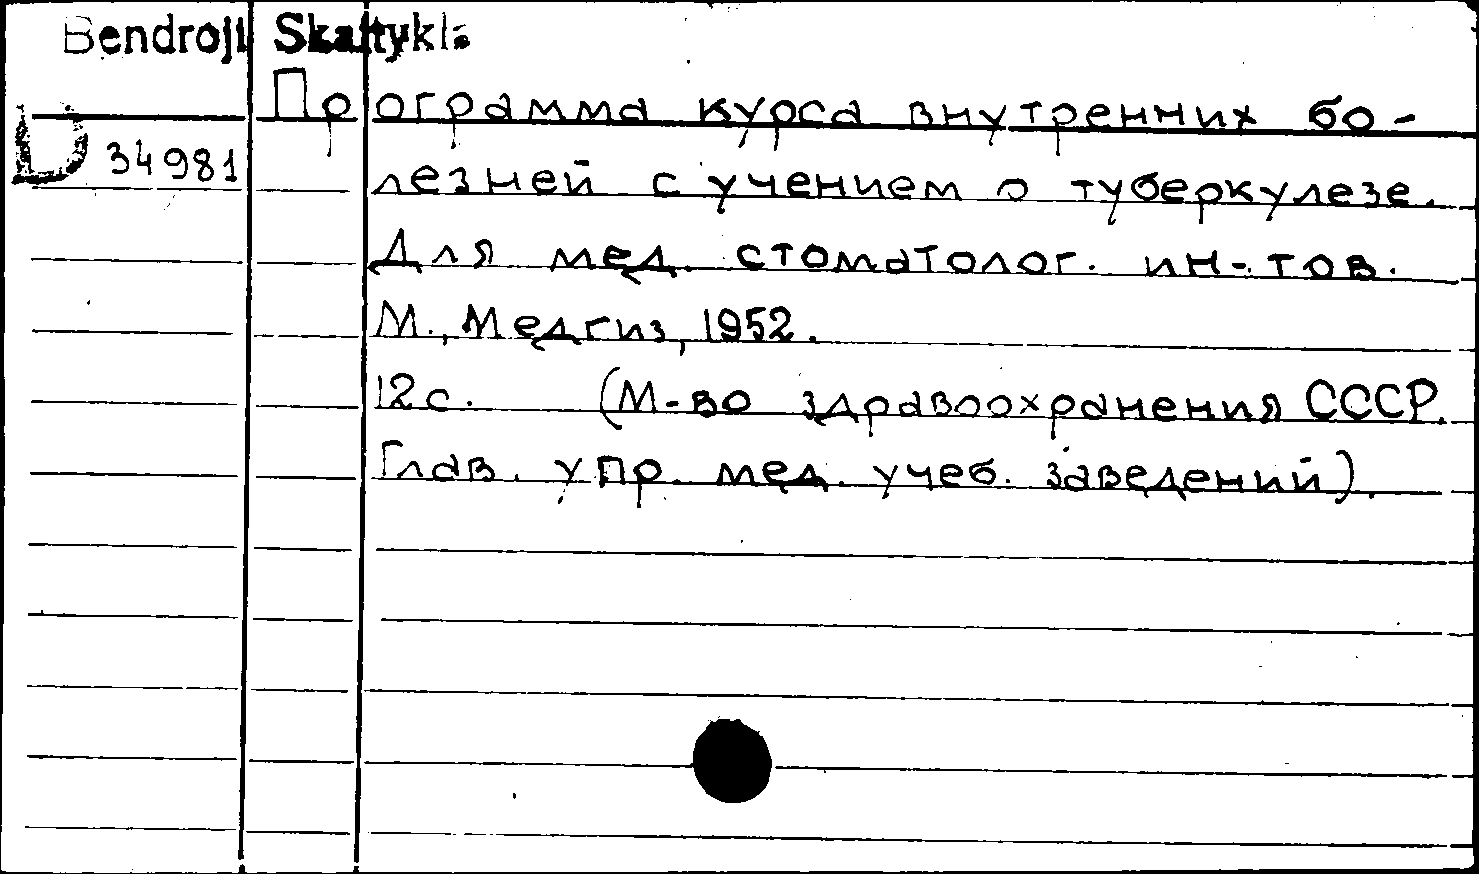 Bendroji Skaitykla
Программа курса внутренних бо-
D 34981
лезней с учением о туберкулезе.
Для мед. стоматолог. ин-тов.
М., Медгиз, 1952.
12 с. (М-во здравоохранения СССР.
Глав. упр. мед. учеб. заведений).